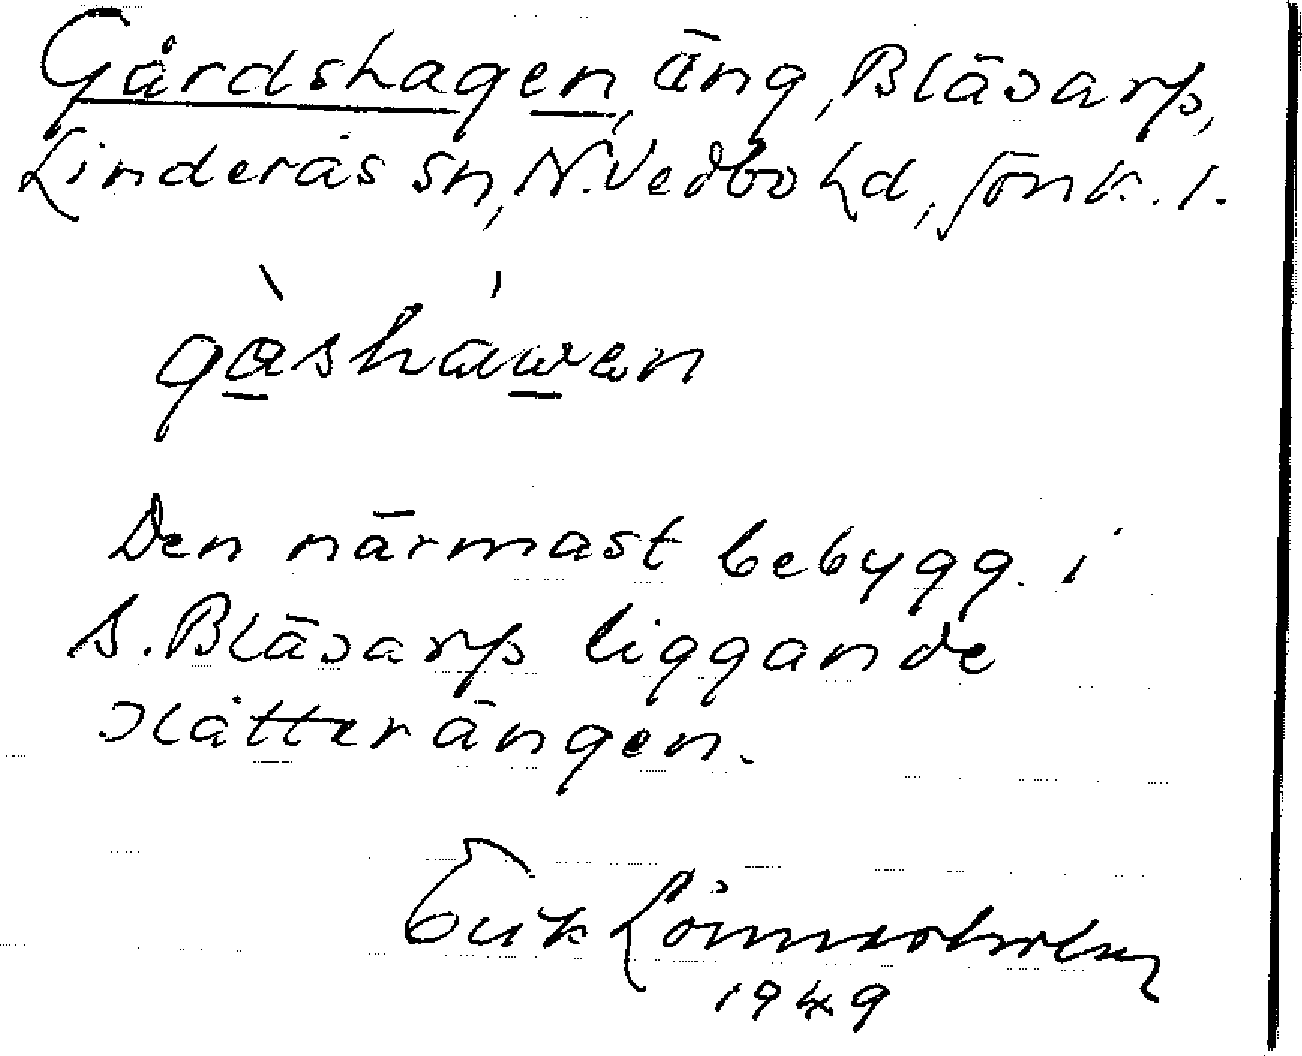 Gårdshagen, äng, Bläsarp,
Linderås sn, N. Vedbo hd, Jönk. l.
gàsháwen
Den närmast bebygg. i
S. Bläsarp liggande
slåtterängen.
Erik Lönnerholm
1949